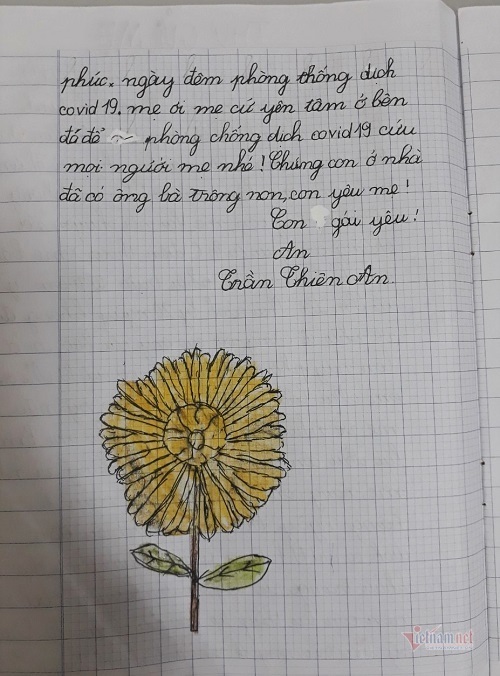 phúc. ngày đêm phòng thống dich
covid 19. mẹ ơi mẹ cứ yên tâm ở bên
đó để phòng chống dich covid 19 cứu
mọi người mẹ nhé! Chúng con ở nhà
đã có ông bà trông non, con yêu mẹ!
Con gái yêu!
An
Trần Thiên An.
Vietnamnet